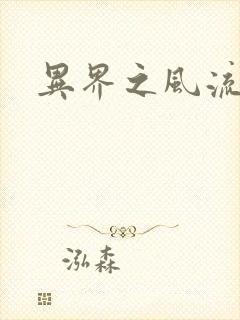 異界之風流
泓森